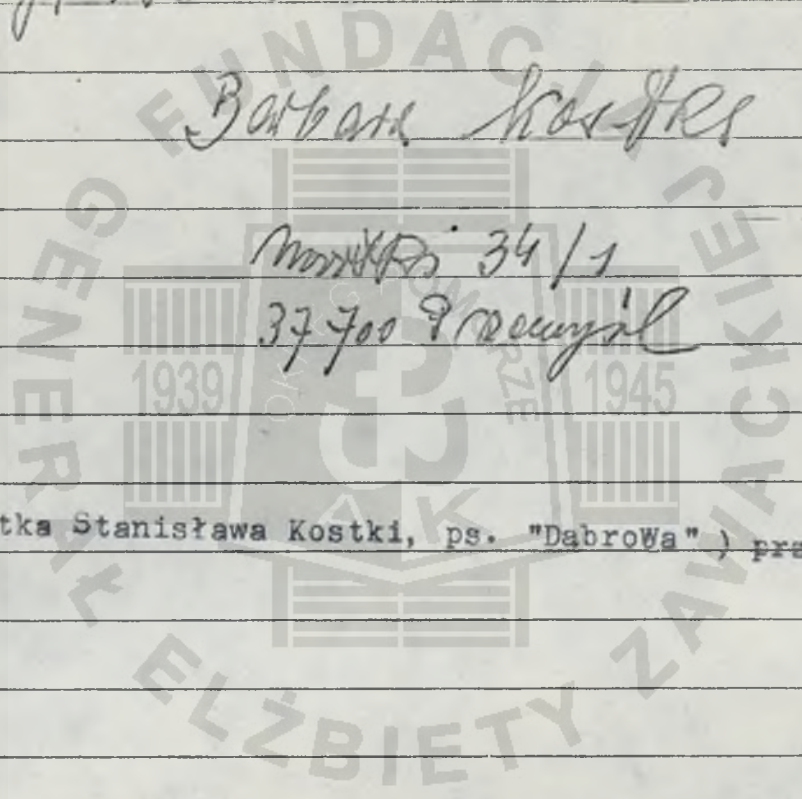 Barbara Kostka
34/1
37700 Przemyśl
tka Stanisława Kostki, ps. "DąbroWa" ) pra
FUNDACJA GENERAŁ ELŻBIETY ZAWACKIEJ
1939 1945
AK